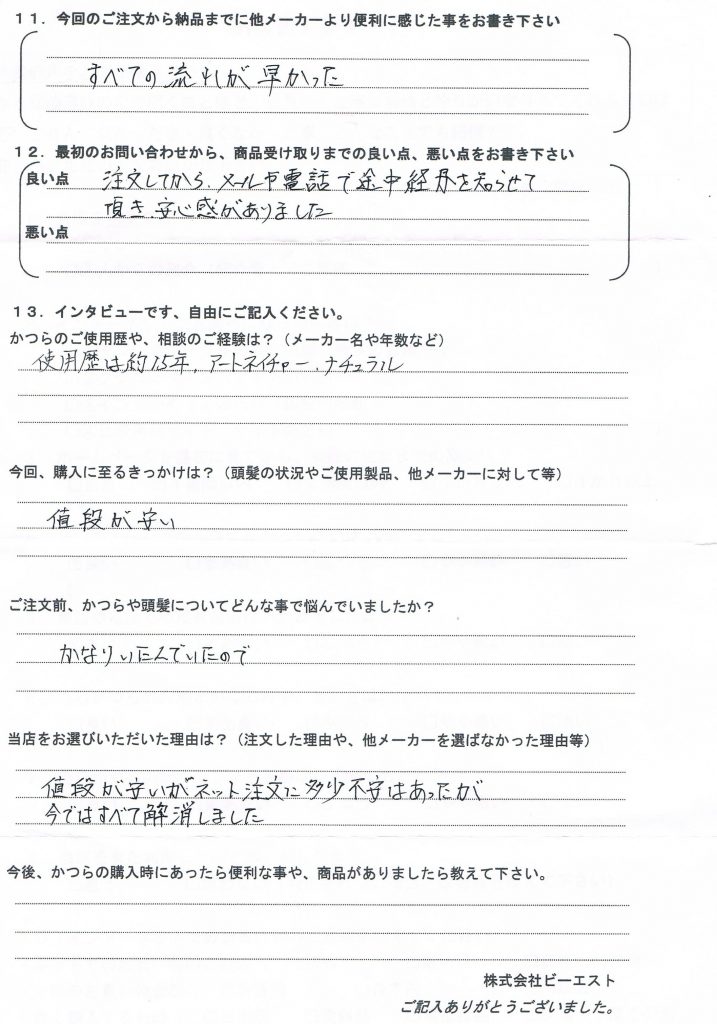 11．今回のご注文から納品までに他メーカーより便利に感じた事をお書き下さい
すべての流れが早かった
12．最初のお問い合わせから、商品受け取りまでの良い点、悪い点をお書き下さい
良い点 注文してから、メールや電話で途中経界を知らせて
頂き、安心感がありました
悪い点
13．インタビューです、自由にご記入ください。
かつらのご使用歴や、相談のご経験は？（メーカー名や年数など）
使用歴は約15年、アートネイチャー、ナチュラル
今回、購入に至るきっかけは？（頭髪の状況やご使用製品、他メーカーに対して等）
値段が安い
ご注文前、かつらや頭髪についてどんな事で悩んでいましたか？
かなりいたんでいたので
当店をお選びいただいた理由は？（注文した理由や、他メーカーを選ばなかった理由等）
値段が安いがネット注文に多少不安はあったが
今ではすべて解消しました
今後、かつらの購入時にあったら便利な事や、商品がありましたら教えて下さい。
株式会社ビーエスト
ご記入ありがとうございました。